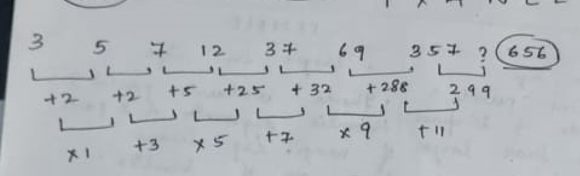 3 5 7 12 37 69 357 ? 656
+2 +2 +5 +25 +32 +288 299
x1 +3 x5 +7 x9 +11